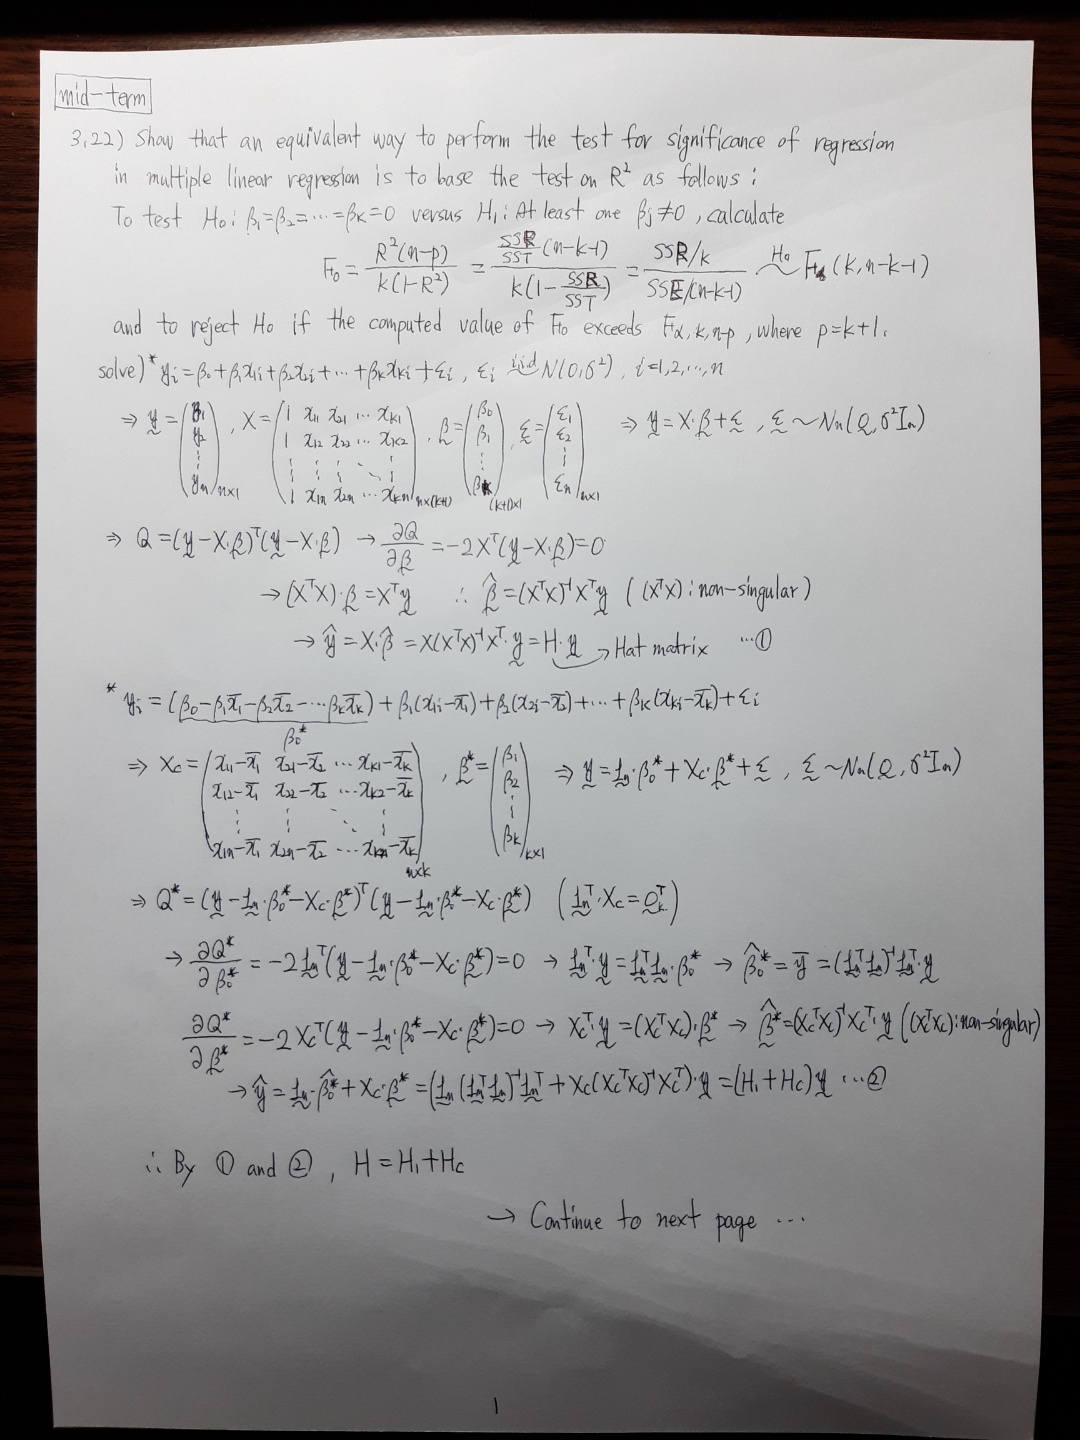 mid-term
3.22) Show that an equivalent way to perform the test for significance of regression
in multiple linear regression is to base the test on R² as follows :
To test H₀ : β₁=β₂=⋯=βₖ=0 versus H₁ : At least one βⱼ≠0 , calculate
F₀ = R²(n-p) / k(1-R²) = (SSR/SST)(n-k-1) / k(1-SSR/SST) = (SSR/k) / (SSE/(n-k-1)) ~H₀ F(k, n-k-1)
and to reject H₀ if the computed value of F₀ exceeds Fα,k,n-p , where p=k+1.
solve) * yᵢ=β₀+β₁x₁ᵢ+β₂x₂ᵢ+⋯+βₖxₖᵢ+εᵢ , εᵢ iid~ N(0,σ²) , i=1,2,⋯,n
⇒ y = (y₁ y₂ ⋮ yₙ)n×1 , X = (1 x₁₁ x₂₁ ⋯ xₖ₁ ; 1 x₁₂ x₂₂ ⋯ xₖ₂ ; ⋮ ⋮ ⋮ ⋱ ⋮ ; 1 x₁ₙ x₂ₙ ⋯ xₖₙ)n×(k+1) , β = (β₀ β₁ ⋮ βₖ)(k+1)×1 , ε = (ε₁ ε₂ ⋮ εₙ)n×1 ⇒ y=X·β+ε , ε~Nₙ(0, σ²Iₙ)
⇒ Q=(y-X·β)ᵀ(y-X·β) → ∂Q/∂β = -2Xᵀ(y-X·β)=0
→ (XᵀX)·β=Xᵀy ∴ β̂=(XᵀX)⁻¹Xᵀy ( (XᵀX) : non-singular )
→ ŷ=X·β̂ =X(XᵀX)⁻¹Xᵀ·y=H·y → Hat matrix ⋯①
* yᵢ=(β₀-β₁x̄₁-β₂x̄₂-⋯βₖx̄ₖ)+β₁(x₁ᵢ-x̄₁)+β₂(x₂ᵢ-x̄₂)+⋯+βₖ(xₖᵢ-x̄ₖ)+εᵢ
β₀*
⇒ Xc = (x₁₁-x̄₁ x₂₁-x̄₂ ⋯ xₖ₁-x̄ₖ ; x₁₂-x̄₁ x₂₂-x̄₂ ⋯ xₖ₂-x̄ₖ ; ⋮ ⋮ ⋱ ⋮ ; x₁ₙ-x̄₁ x₂ₙ-x̄₂ ⋯ xₖₙ-x̄ₖ)n×k , β* = (β₁ β₂ ⋮ βₖ)k×1 ⇒ y=1ₙ·β₀*+Xc·β*+ε , ε~Nₙ(0, σ²Iₙ)
⇒ Q*=(y-1ₙ·β₀*-Xc·β*)ᵀ(y-1ₙ·β₀*-Xc·β*) (1ₙᵀ·Xc=0ₖᵀ)
→ ∂Q*/∂β₀* = -2 1ₙᵀ(y-1ₙ·β₀*-Xc·β*)=0 → 1ₙᵀ·y=1ₙᵀ1ₙ·β₀* → β̂₀*=ȳ=(1ₙᵀ1ₙ)⁻¹1ₙᵀ·y
∂Q*/∂β* = -2Xcᵀ(y-1ₙ·β₀*-Xc·β*)=0 → Xcᵀ·y=(XcᵀXc)·β* → β̂*=(XcᵀXc)⁻¹Xcᵀ·y ((XcᵀXc) : non-singular)
→ ŷ=1ₙ·β̂₀*+Xc·β̂*=(1ₙ(1ₙᵀ1ₙ)⁻¹1ₙᵀ+Xc(XcᵀXc)⁻¹Xcᵀ)·y=(H₁+Hc)y ⋯②
∴ By ① and ② , H=H₁+Hc
→ Continue to next page ⋯
1